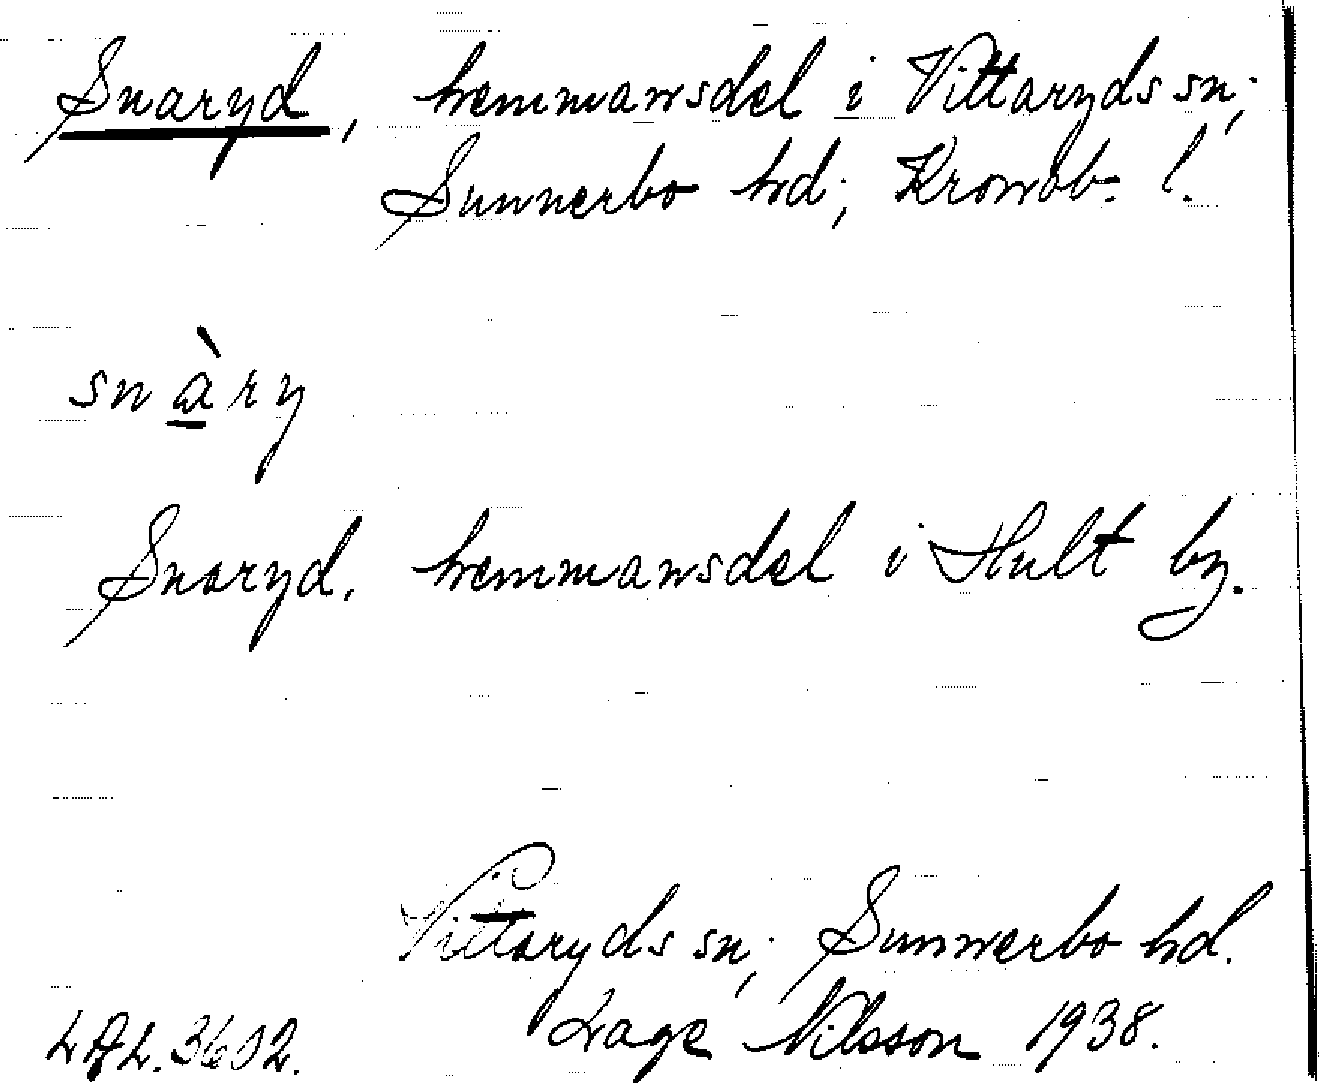 Snaryd, hemmansdel i Vittaryds sn;
Sunnerbo hd; Kronob. l.
snàry
Snaryd. hemmansdel i Hult by.
Vittaryds sn; Sunnerbo hd.
Lage Nilsson 1938.